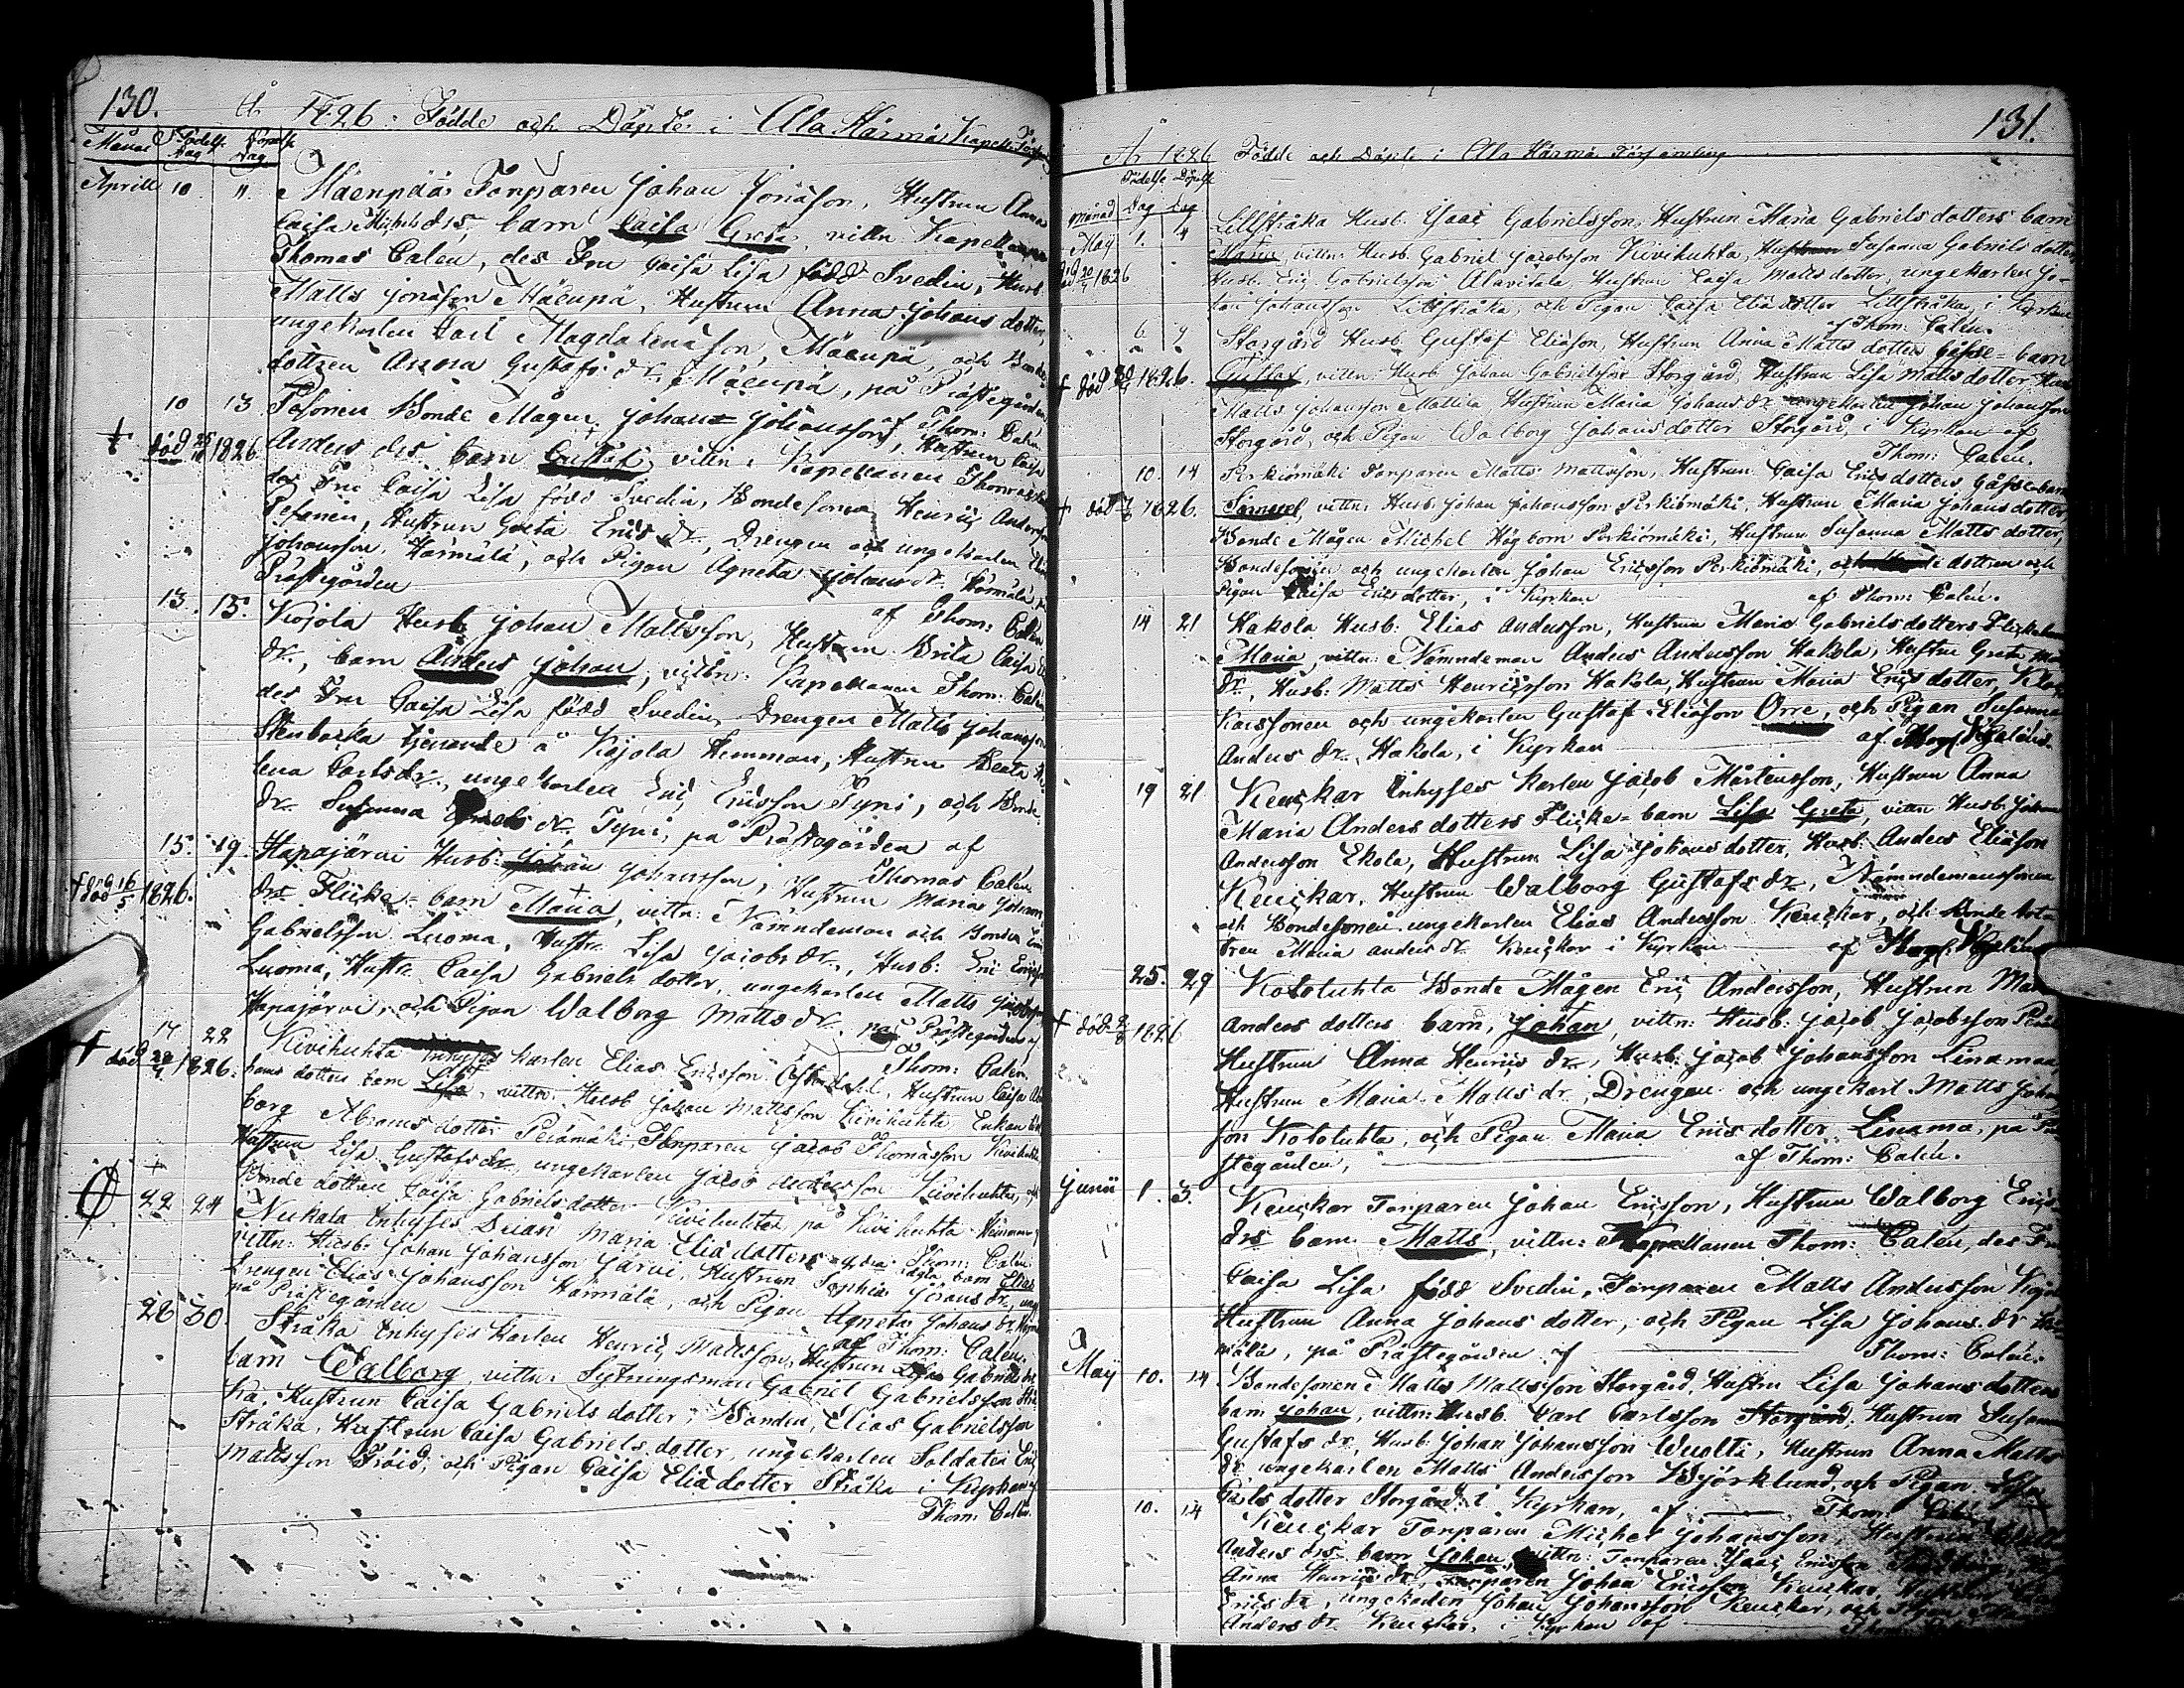 130.
År 1826. Födde och Döpte i Ala Härmä Kapells
Månad Födelse Dag Döpelse Dag
Aprill 10 11. Mäenpää Torparen Johan Jonasson, Hustrun Anna
Caisa Michelsdrs, barn Caisa Greta, vittn Kapellanen
Thomas Calén, des Fru Caisa Lisa född Svedin, Husb.
Matts Jonasson Mäenpä, Hustrun Anna Johans dotter,
ungekarlen Carl Magdalenason, Mäenpä, och Bonde
dottren Anna Gustafs dr. Mäenpä, på Prästegården
af Thom: Calén
10 13 Pesonen Bonde Mågen Johan Johansson, Hustrun Caisa
† död 1826 Anders drs barn Gustaf, vittn: Kapellanen Thomas
des Fru Caisa Lisa född Svedin, Bondesonen Henric Andersson
Pesonen, Hustrun Greta Erics dr, Drengen och ungekarlen
Johansson, Härmälä, och Pigan Agneta Johans dr. Härmälä,
Prästegården
af Thom: Calén
13. 15. Kojola Husb Johan Mattsson, Hustrun Brita Caisa
dr., barn Anders Johan, vittn: Kapellanen Thom: Calén,
des Fru Caisa Lisa född Svedin, Drengen Matts Johansson
Stenbacka tjenande å Kojola Hemman, Hustrun Beata
lena Carlsdr, ungekarlen Eric Ericsson Tyni, och Bonde
dr. Susanna dr. Tyni, på Prästegården af
Thomas Calén
15. 19. Hapajärvi Husb: Johan Johansson, Hustrun Maria Johans
† död 16/5 1826. dr Flicke-barn Maria, vittn: Nämndeman och Bonden
Gabrielsson Luoma, Hustr. Lisa Jacobs dr., Husb: Eric Ericsson
Luoma, Hustr. Caisa Gabriels dotter, ungekarlen Matts
Hapajärvi, och Pigan Walborg Matts dr, på Prästegården
af Thom: Calén
17 22 Kivihuhta Inhyses karlen Elias Ericsson, Hustrun Caisa
† död 1826. hans dotters barn Lisa, vittn: Husb Johan Mattsson Kivihuhta, Enkan
borg Abrams dotter, Torparen Jacob Thomasson Kivihuhta
Hustrun Lisa Gustafs dr, ungekarlen Jacob Andersson Kivihuhta, och
Bonde dottren Caisa Gabriels dotter Kivihuhta på Kivihuhta Hemman
af Thom: Calén
22 24 Nukala Inhyses Maria Elia dotters barn Elias
vittn: Husb: Johan Johansson Järvi, Hustrun Sophia Johans dr,
Drengen Elias Johansson Härmälä, och Pigan Agneta Johans dr.
på Prästegården af Thom: Calén
28 30. Stråka Inhyses karlen Henric Mattsson, Hustrun Lisa Gabriels
barn Walborg, vittn: Sytningsman Gabriel Gabrielsson
ka, Hustrun Caisa Gabriels dotter, Bonden Elias Gabrielsson
Stråka, Hustrun Caisa Gabriels dotter, ungekarlen Soldaten Eric
Mattsson Fröid, och Pigan Caisa Elia dotter Stråka i Kyrkan af
Thom: Calén.
131.
År 1826 Födde och Döpte i Ala Härmä Församling
Månad Födelse Dag Döpelse Dag
May 1. 4 Lillstråka Husb. Isaac Gabrielsson, Hustrun Maria Gabriels dotters barn
Maria, vittn: Husb. Gabriel Jacobsson Kivihuhta, Hustrun Susanna Gabriels dotter
död 1826 Husb. Eric Gabrielsson Alavitala, Hustrun Caisa Matts dotter, ungekarlen Jo-
han Johansson Lillstråka, och Pigan Caisa Elia dotter Lillstråka, i Kyrkan
af Thom: Calén.
6 7 Storgård Husb. Gustaf Eliasson, Hustrun Anna Matts dotters Gosse-barn
† död 1826. Gustaf, vittn: Husb Johan Gabrielsson Storgård, Hustrun Lisa Matts dotter, Husb
Matts Johansson Mattila, Hustrun Maria Johans dr. ungekarlen Johan Johansson
Storgård, och Pigan Walborg Johans dotter Storgård, i Kyrkan af
Thom: Calén.
10. 14 Perkiömäki Torparen Matts Mattsson, Hustrun Caisa Erics dotters Gosse-barn
† död 1826. Samuel, vittn: Husb: Johan Johansson Perkiömäki, Hustrun Maria Johans dotter,
Bonde Mågen Michel Högbom Perkiömäki, Hustrun Susanna Matts dotter,
Bondesonen och ungekarlen Johan Ericsson Perkiömäki, dottren och
Pigan Caisa Erics dotter, i Kyrkan af Thom: Calén.
14 21 Hakola Husb: Elias Andersson, Hustrun Maria Gabriels dotters Flickebarn
Maria, vittn: Nämndeman Anders Andersson Hakola, Hustru Greta
dr., Husb: Matts Henricsson Hakola, Hustrun Maria Erics dotter,
och ungekarlen Gustaf Eliasson Orre, och Pigan Susanna
Anders dr. Hakola, i Kyrkan af
19 21 Keuckar Inhyses karlen Jacob Mårtensson, Hustrun Anna
Maria Anders dotters Flicke-barn Lisa Greta, vittn Husb: Johan
Andersson Ekola, Hustrun Lisa Johans dotter, Husb: Anders Eliasson
Keuckar, Hustrun Walborg Gustafs dr, Nämndemanssonen
och Bondesonen ungekarlen Elias Andersson Keuckar, och Bonde dot-
tren Maria Anders dr. Keuckar i Kyrkan af
25. 29 Kotoluhta Bonde Mågen Eric Andersson, Hustrun
† död 1826 Anders dotters barn, Johan, vittn: Husb: Jacob Jacobsson
Hustrun Anna Henrics dr, Husb: Jacob Johansson Linamaa,
Hustrun Maria Matts dr, Drengen och ungekarl Matts Johans
son Kotoluhta, och Pigan Maria Erics dotter Linama, på Prä
stegården, af Thom: Calén.
Junii 1. 3. Keuckar Torparen Johan Ericsson, Hustrun Walborg Erics
drs barn Matts, vittn: Kapellanen Thom: Calén, des Fru
Caisa Lisa född Svedin, Torparen Matts Andersson
Hustrun Anna Johans dotter, och Pigan Lisa Johans dr Här
mälä, på Prästegården af Thom: Calén.
May 10. 14 Bondesonen Matts Mattsson Storgård, Hustru Lisa Johans dotters
barn Johan, vittn: Husb. Carl Carlsson Storgård, Hustrun Susanna
Gustafs dr, Husb: Johan Johansson Wuolti, Hustrun Anna Matts
dr ungekarlen Matts Andersson Björklund, och Pigan Lisa
Carls dotter Storgård i Kyrkan, af Thom: Calén
10. 14 Keuckar Torparen Michel Johansson, Hustrun
Anders drs barn Johan, vittn: Torparen Isaac Ericsson
Anna Henrics dr, Torparen Johan Ericsson Keuckar, Hustrun
Erics dr, ungekarlen Johan Johansson Keuckar, och Pigan
Anders dr. Keuckar, i Kyrkan af